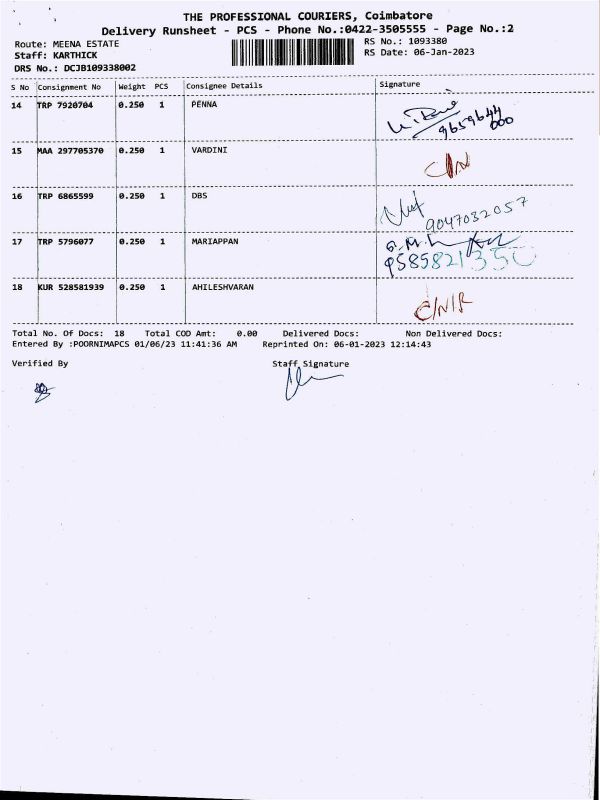 THE PROFESSIONAL COURIERS, Coimbatore
Delivery Runsheet - PCS - Phone No.:0422-3505555 - Page No.:2
Route: MEENA ESTATE RS No.: 1093380
Staff: KARTHICK RS Date: 06-Jan-2023
DRS No.: DCJB109338002
S No Consignment No Weight PCS Consignee Details Signature
14 TRP 7920704 0.250 1 PENNA
9659644
000
15 MAA 297705370 0.250 1 VARDINI
16 TRP 6865599 0.250 1 DBS
9047032057
17 TRP 5796077 0.250 1 MARIAPPAN
9585821350
18 KUR 528581939 0.250 1 AHILESHVARAN
Total No. Of Docs: 18 Total COD Amt: 0.00 Delivered Docs: Non Delivered Docs:
Entered By :POORNIMAPCS 01/06/23 11:41:36 AM Reprinted On: 06-01-2023 12:14:43
Verified By Staff Signature